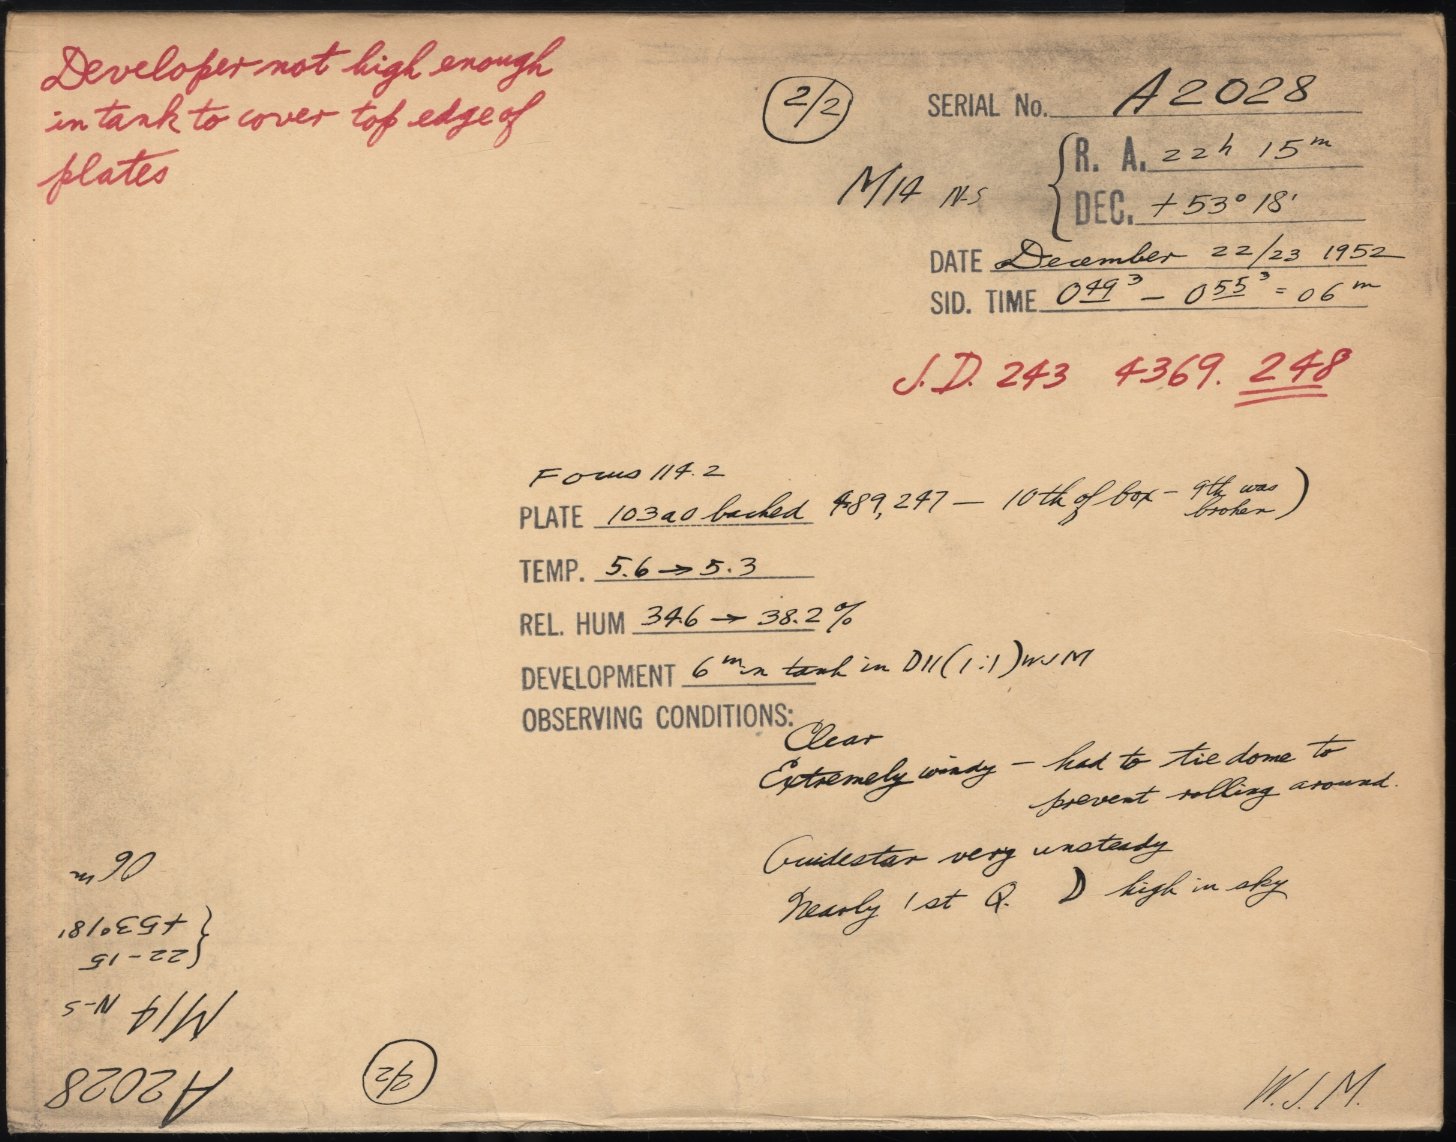 Developer not high enough
in tank to cover top edge of
plates
2/2
SERIAL No. A2028
M14 N-S { R. A. 22h 15m
DEC. +53° 18'
DATE December 22/23 1952
SID. TIME 0 49 3 — 0 55 3 = 06 m
J.D. 243 4369. 248
Focus 114.2
PLATE 103aO backed 489,247 — 10th of box - 9th was broken)
TEMP. 5.6 → 5.3
REL. HUM 34.6 → 38.2 %
DEVELOPMENT 6 min tank in D11 (1:1) WJM
OBSERVING CONDITIONS:
Clear
Extremely windy — had to tie dome to
prevent rolling around.
Guidestar very unsteady
Nearly 1st Q. ☽ high in sky
W.J.M.
A2028
2/2
M14 N-S
{ 22-15
+53°18'
06 m